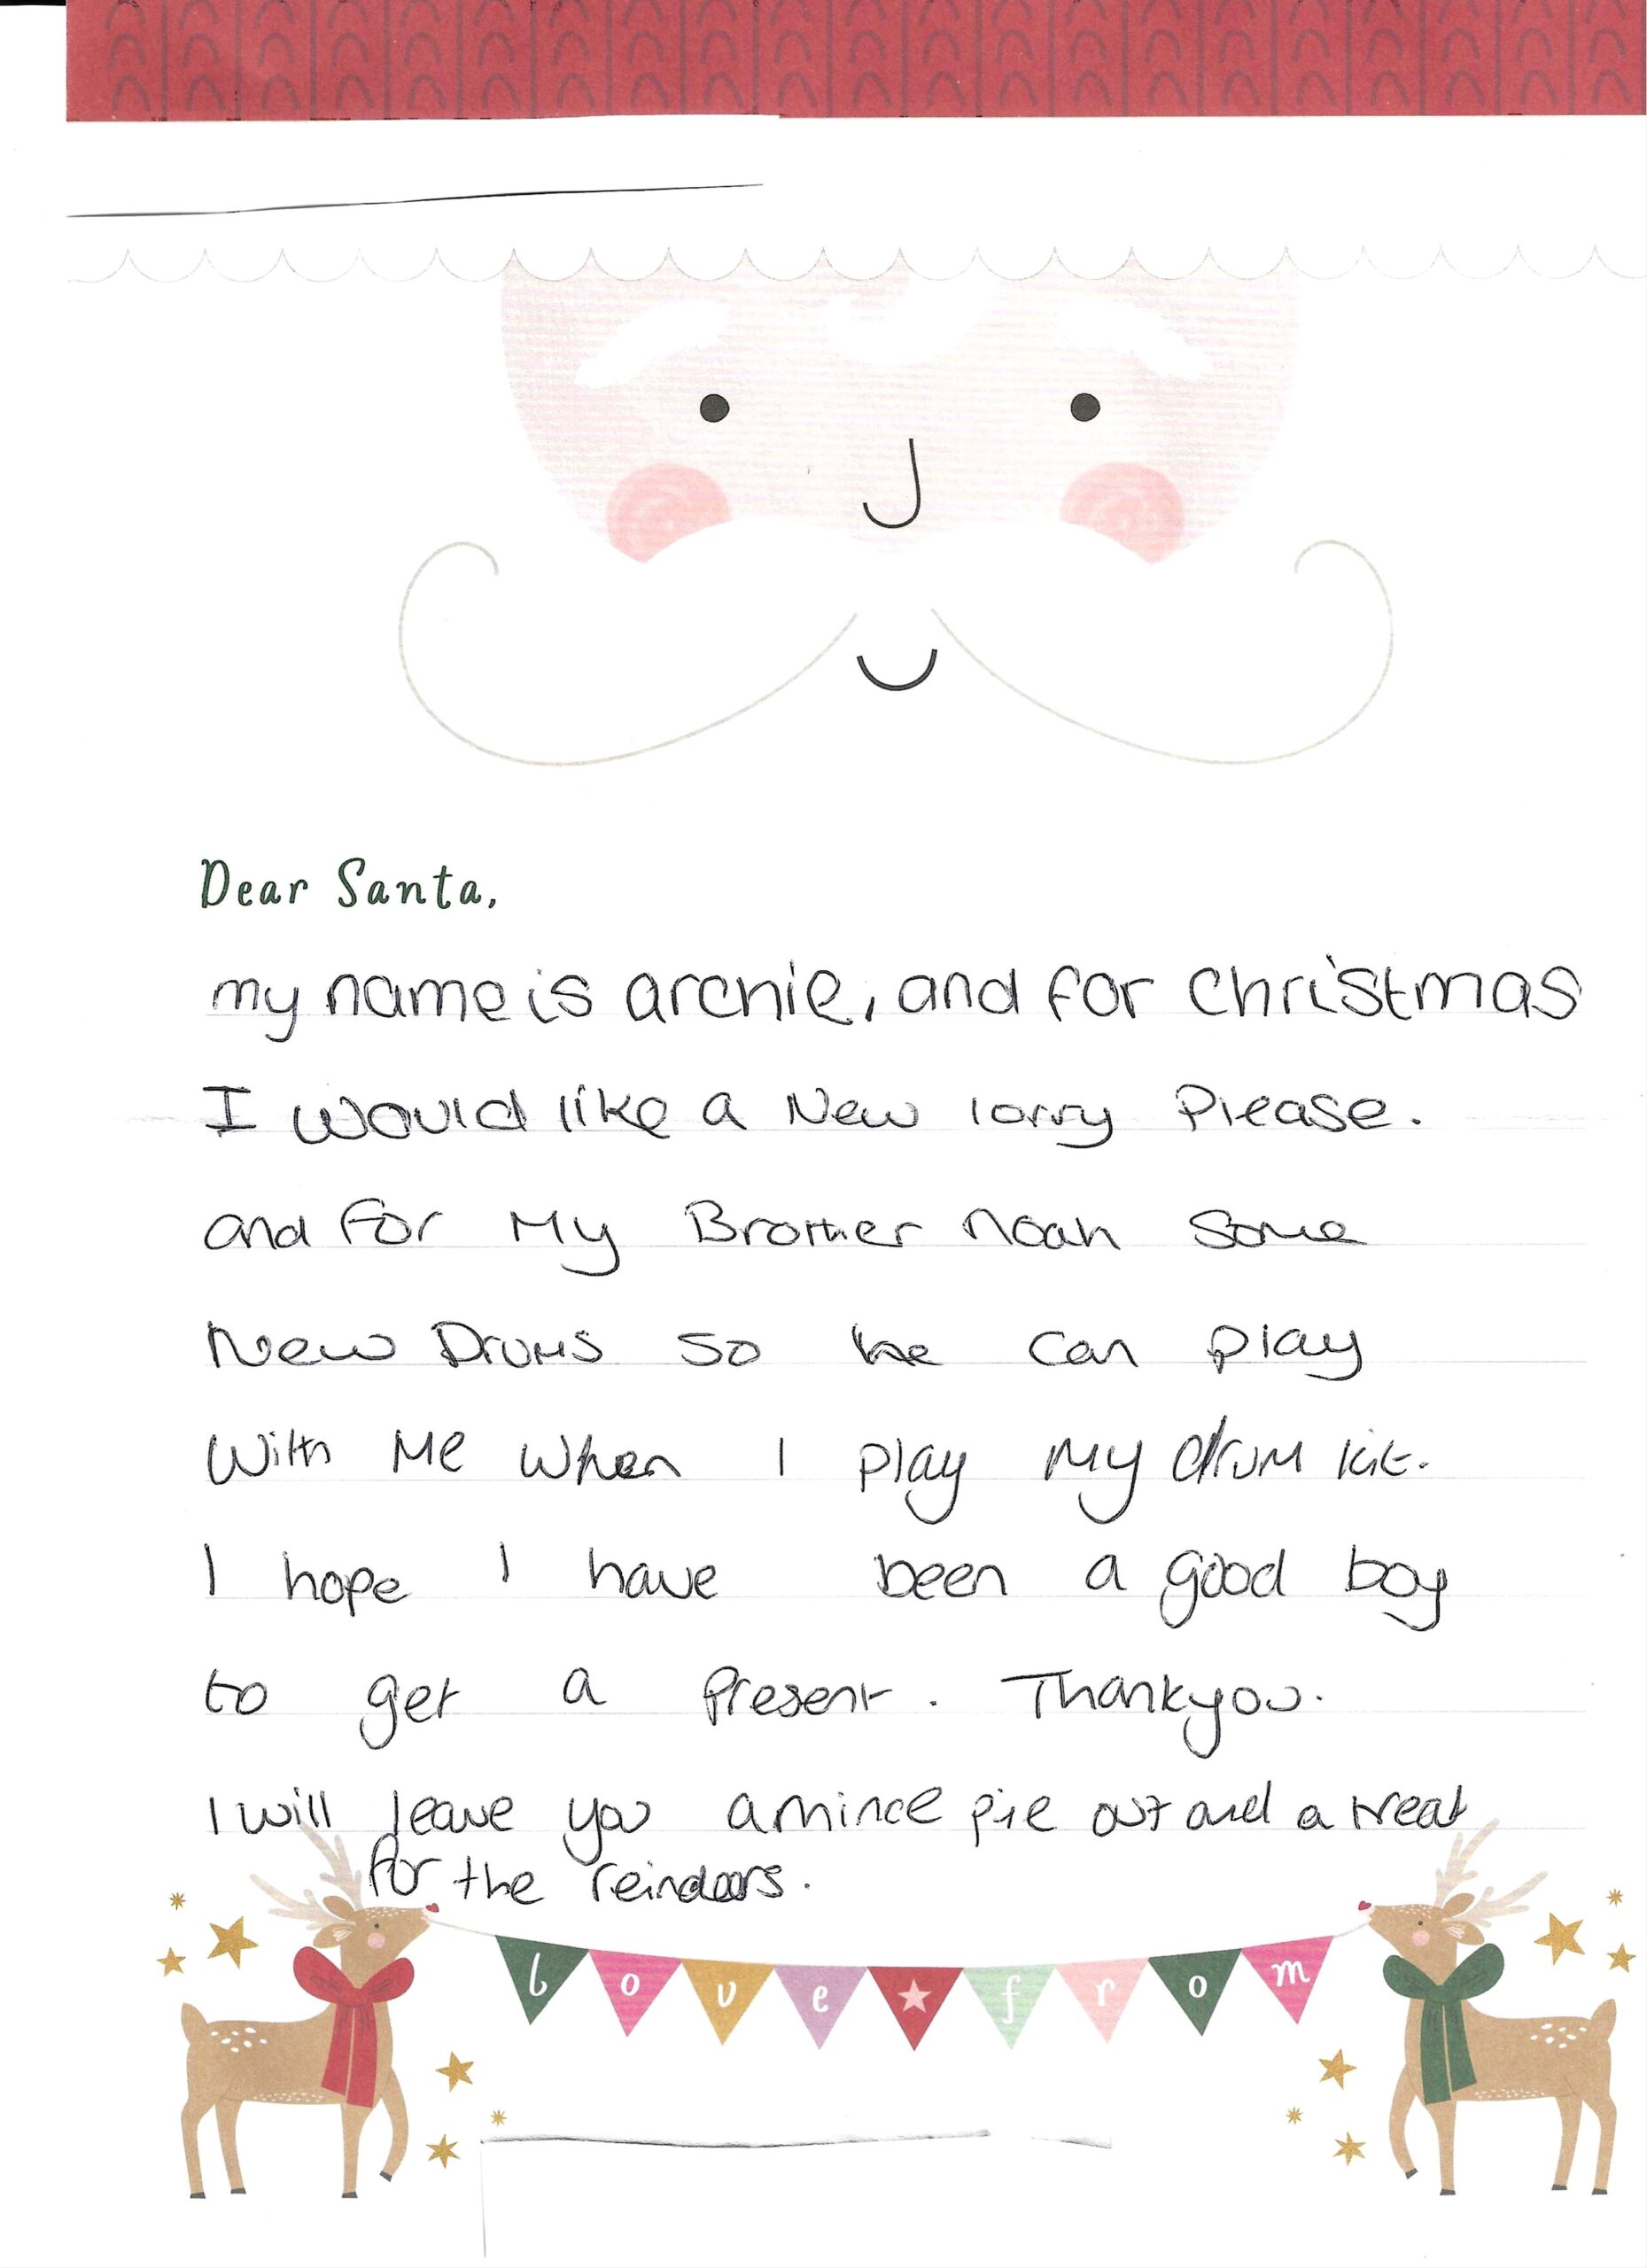 Dear Santa,
my name is archie, and for christmas
I would like a New lorry Please.
and for My Brother Noah Some
New Drums so he can play
With Me when I play My drum kit.
I hope I have been a good boy
to get a Present. Thankyou.
I will leave you a mince pie out and a treat
for the reindeers.
love ★ from